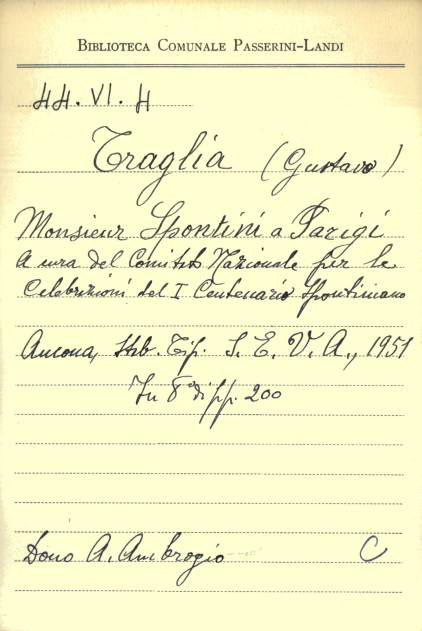 BIBLIOTECA COMUNALE PASSERINI-LANDI
44. VI. 4
Traglia (Gustavo)
Monsieur Spontini a Parigi
A cura del Comitato Nazionale per le
Celebrazioni del I Centenario Spontiniano
Ancona, Stab. Tip. S. E. V. A., 1951
In 8° di pp. 200
Dono A. Ambrogio C